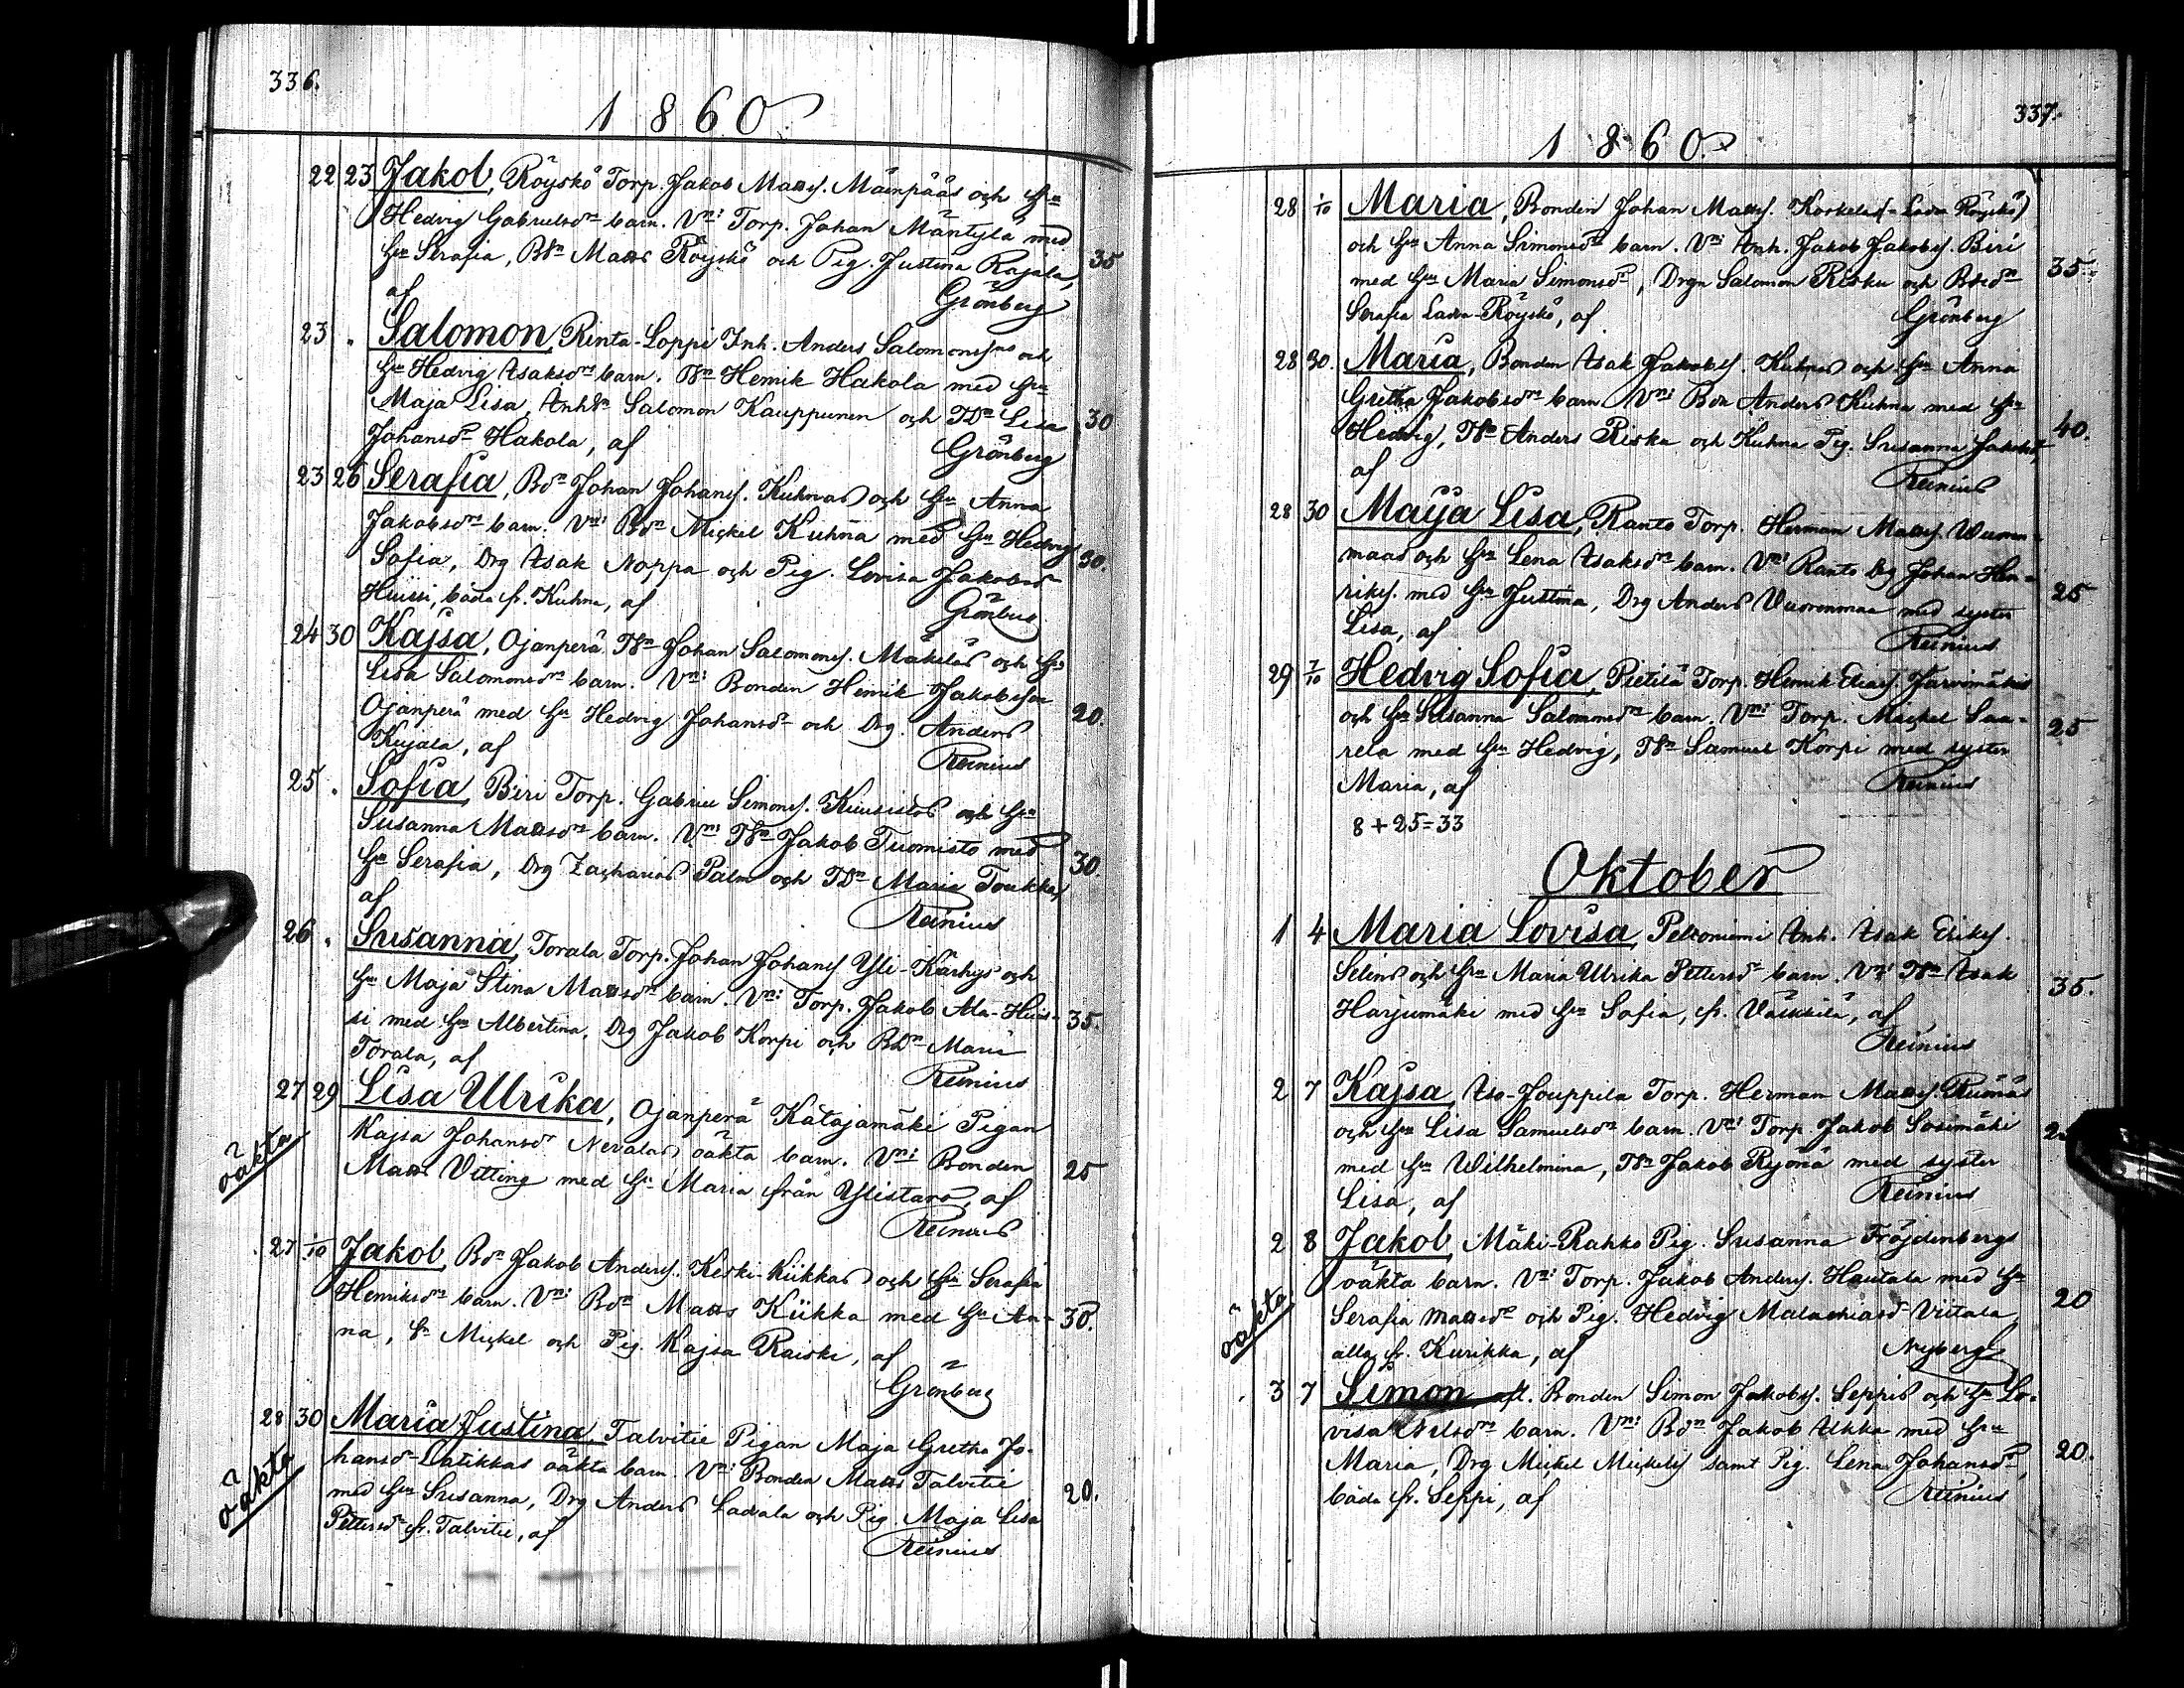 336.
1860.
22 23 Jakob, Röyskö Torp. Jakob Matts. Mäenpääs och Hu
Hedvig Gabrielsdr barn. Vni: Torp. Johan Mäntyla med
Hu Serafia, Bsn Matts Röyskö och Pig. Justina Rajala, 35
af Grönberg
23 " Salomon, Rinta-Loppi Inh. Anders Salomonss och
Hu Hedvig Isaksdr barn. Henrik Hakola med Hu
Maja Lisa, Inhsn Salomon Kauppinen och TDr Lisa 30
Johansdr Hakola, af Grönberg
23 26 Serafia, Bdn Johan Johans. Kuhnas och Hu Anna
Jakobsdr barn. Vni: Bdn Mickel Kuhna med Hu Hedvig
Sofia, Drg Isak Noppa och Pig. Lovisa Jakobsdr 30.
Huissi, båda fr. Kuhna, af Grönberg
24 30 Kajsa, Ojanperä Tsn Johan Salomons. Mäkeläs och Hu
Lisa Salomonsdr barn. Vni: Bonden Henrik Jakobsson
Ojanperä med Hu Hedvig Johansdr och Drg. Anders 20.
Kujala, af Reinius
25 " Sofia, Biri Torp. Gabriel Simons. Kuusistos och Hu
Susanna Mattsdr barn. Vni: Tsn Jakob Tuomisto med
Hu Serafia, Drg Zacharias Palm och TDr Maria Toukka, 30.
af Reinius
26 " Susanna, Torala Torp. Johan Johans Yli-Kärhys och
Hu Maja Stina Mattsdr barn. Vni: Torp. Jakob Ala-Huis-
si med Hu Albertina, Drg Jakob Korpi och BDr Maria 35.
Torala, af Reinius
27 29 Lisa Ulrika, Ojanperä Katajamäki Pigan
oäkta Kajsa Johansdr Nevalas oäkta barn. Vni: Bonden
Matts Vitting med Hu Maria från Ylistaro, af 25
Reinius
27 1/10 Jakob, Bdn Jakob Anders. Keski-Kiikkas och Hu Serafia
Henriksdr barn. Vni: Bdn Matts Kiikka med Hu An-
na, Sn Mickel och Pig. Kajsa Raiski, af 30.
Grönberg
28 30 Maria Justina, Talvitie Pigan Maja Gretha Jo-
oäkta hansdr Latikkas oäkta barn. Vni: Bonden Matts Talvitie
med Hu Susanna, Drg Anders Ladvala och Pig. Maja Lisa 20.
Pettersdr fr. Talvitie, af Reinius
337.
1860.
28 1/10 Maria, Bonden Johan Matts. Koskelas (=Ladva Röyskö)
och Hu Anna Simonsdr barn. Vni: Inh. Jakob Jakobs. Biri
med Hu Maria Simonsdr, Drgn Salomon Risku och 35.
Serafia Ladva-Röyskö, af Grönberg
28 30. Maria, Bonden Isak Jakobs. Kuhnas och Hu Anna
Gretha Jakobsdr barn Vni: Bdn Anders Kuhna med Hu
Hedvig, Tsn Anders Riska och Kuhna Pig. Susanna Jakobsdr, 40.
af Reinius
28 30 Maija Lisa, Ranto Torp. Herman Matts. Wuoren-
maas och Hu Lena Isaksdr barn. Vni: Ranto Drg Johan Hen-
riks. med Hu Justina, Drg Anders Vuorenmaa med syster 25
Lisa, af Reinius
29 7/10 Hedvig Sofia, Pietilä Torp. Henrik Elias. Järvimäkis
och Hu Susanna Salomonsdr barn. Vni: Torp. Mickel Saa-
rela med Hu Hedvig, Tsn Samuel Korpi med syster 25
Maria, af Reinius
8+25=33
Oktober
1 4 Maria Lovisa, Peltoniemi Inh. Isak Eriks.
Selins och Hu Maria Ulrika Pettersdr barn. Vni: Tsn Isak
Harjumäki med Hu Sofia, fr. Väkkilä, af 35.
Reinius
2 7 Kajsa, Iso-Jouppila Torp. Herman Matts.
och Hu Lisa Samuelsdr barn. Vni: Torp. Jakob Sosimäki
med Hu Wilhelmina, Tsn Jakob Ryömä med syster
Lisa, af Reinius
2 8 Jakob, Mäki-Rahko Pig. Susanna Fröjdenbergs
oäkta oäkta barn. Vni: Torp. Jakob Anders. Hautala med Hu
Serafia Mattsdr och Pig. Hedvig Malachiasdr Viitala, 20
alla fr. Kurikka, af Nyberg
3 7 Simon, aft. Bonden Simon Jakobs. Seppis och Hu Lo-
visa Nilsdr barn. Vni: Bdn Jakob Ukka med Hu
Maria, Drg Mickel Mickels samt Pig. Lena Johansdr, 20.
båda fr. Seppi, af Reinius